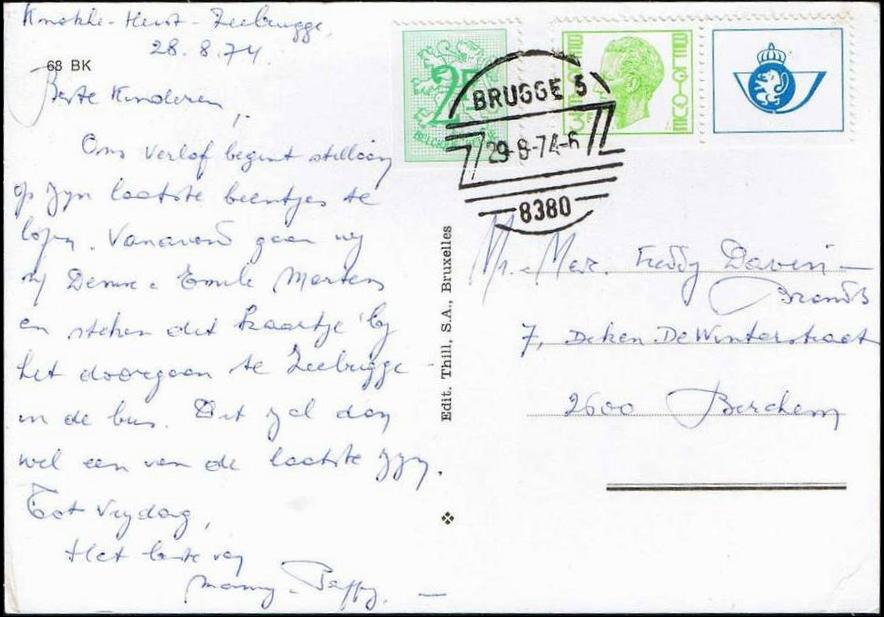 Knokke-Heist-Zeebrugge,
28.8.74.
68 BK
Beste Kinderen,
Ons verlof begint stillaan
op zyn laatste beentjes te
lopen. Vanavond gaan wy
by Denise & Emile Martens
en steken dit kaartje by
het doorgaan te Zeebrugge
in de bus. Dit zal dan
wel een van de laatste zyn.
Tot Vrydag,
Het beste van
Mammy. Pappy.
Edit. Thill, S.A., Bruxelles
2F
BELGIE BELGIQUE
3F
BRUGGE 5
29-8-74-
8380
Mr. & Mev. Freddy Davin-
Brands
7, Deken De Winterstraat
2600 Berchem